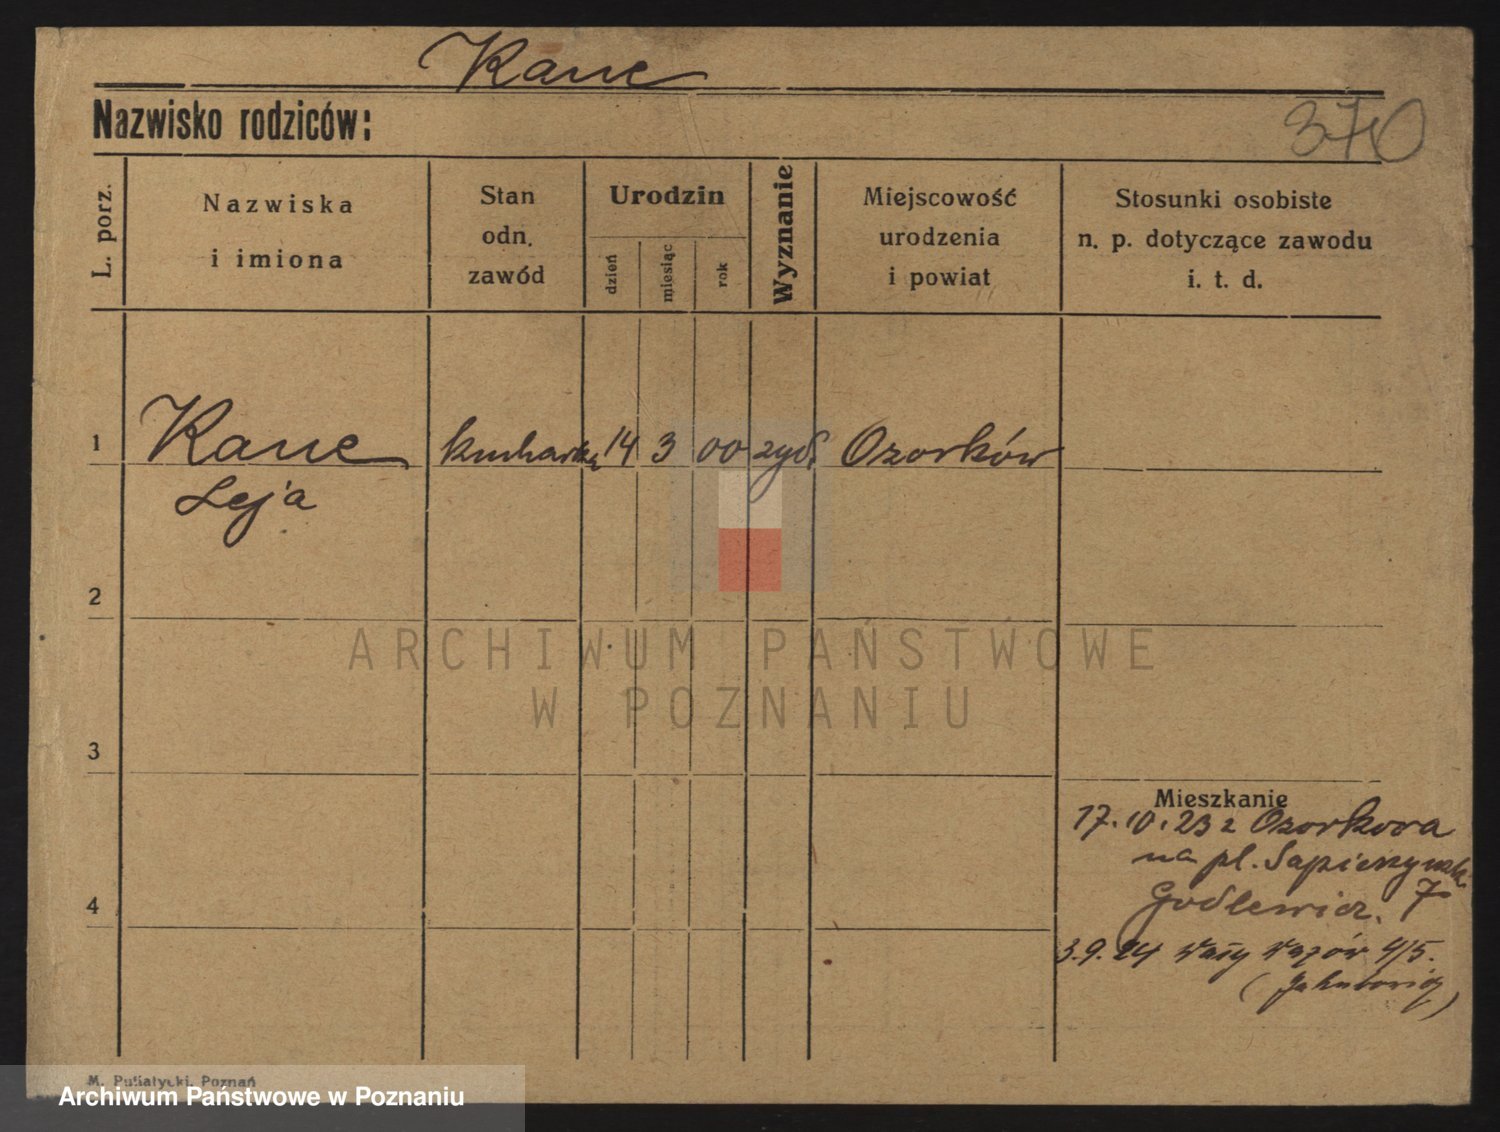 Kane
Nazwisko rodziców:
370
L. porz.
Nazwiska
i imiona
Stan
odn.
zawód
Urodzin
dzień
miesiąc
rok
Wyznanie
Miejscowość
urodzenia
i powiat
Stosunki osobiste
n. p. dotyczące zawodu
i. t. d.
1
Kane
Leja
kucharka
14
3
00
żyd.
Ozorków
2
3
4
Mieszkanie
17.10.23 z Ozorkowa
na pl. Sapieżyński
Godlewicz. 7
3.9.24 Wały Wazów 4/5.
(Jakubowicz)
M. Putiatycki, Poznań
ARCHIWUM PAŃSTWOWE
W POZNANIU
Archiwum Państwowe w Poznaniu